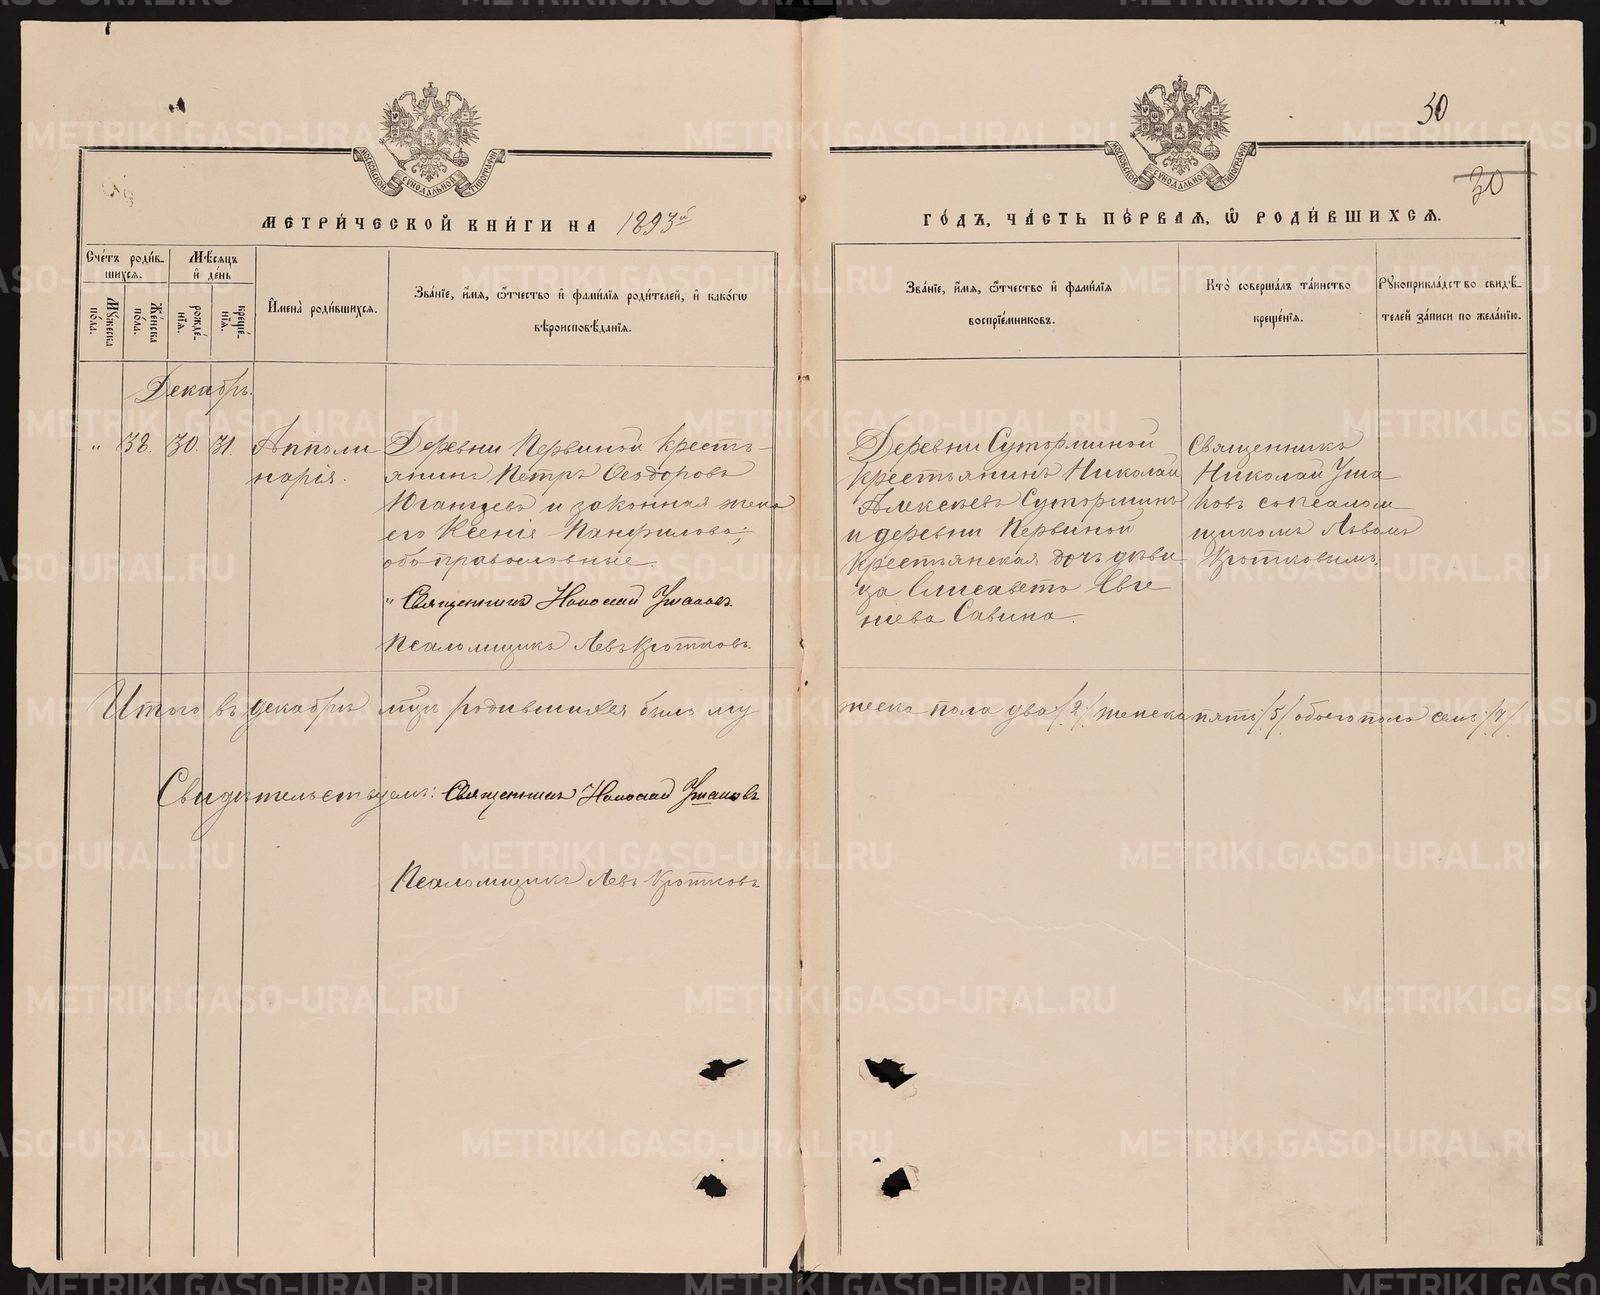 30
30
МОСКОВСКОЙ СѴНОДАЛЬНОЙ ТИПОГРАФІИ
МОСКОВСКОЙ СѴНОДАЛЬНОЙ ТИПОГРАФІИ
МЕТРИ́ЧЕСКОЙ КНИ́ГИ НА 1893й
ГО́ДЪ, ЧА́СТЬ ПЕ́РВАЯ, Ѡ҆ РОДИ́ВШИХСЯ.
Сче́тъ роди́в-
шихся.
Мꙋ́жеска по́ла.
Же́нска по́ла.
Мѣ́сяцъ и҆ де́нь
рожде́-
нїя.
креще́-
нїя.
И҆мена̀ роди́вшихся.
Зва́нїе, и҆́мя, ѻ҆́тчество и҆ фами́лїя роди́телей, и҆ како́гѡ
вѣроисповѣ́данїя.
Зва́нїе, и҆́мя, ѻ҆́тчество и҆ фами́лїя
воспрїе́мниковъ.
Кто̀ соверша́лъ та́инство
креще́нїя.
Рꙋкоприкла́дство свидѣ́-
телей за́писи по жела́нїю.
Декабрь.
" 38. 30. 31. Апполи
нарія.
Деревни Первиной кресть-
янинъ Петръ Ѳеодоровъ
Юганцевъ и законная жена
его Ксенія Панфилова;
оба православные.
" Священникъ Николай Ушаковъ.
Псаломщикъ Левъ Кротковъ.
Деревни Суторминой
крестьянинъ Николай
Алексѣевъ Суторминъ
и деревни Первиной
крестьянская дочь дѣви
ца Елисавета Евге
ніева Савина.
Священникъ
Николай Уша
ковъ съ псалом
щикомъ Львомъ
Кротковымъ.
Итого въ декабрѣ м-цѣ родившихся было му
жеска пола два /2/ женска пять /5/ обоего пола семь /7/
Свидѣтельствуемъ: Священникъ Николай Ушаковъ
Псаломщикъ Левъ Кротковъ
METRIKI.GASO-URAL.RU